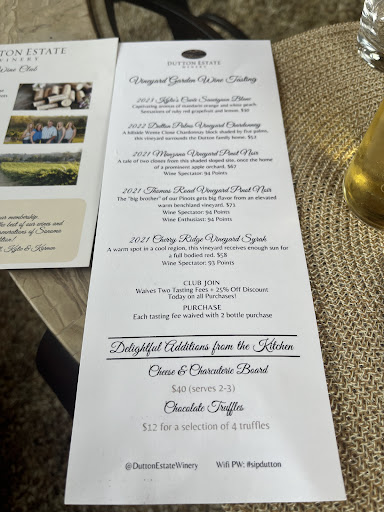 DUTTON ESTATE
WINERY
Wine Club
DUTTON ESTATE
WINERY
Vineyard Garden Wine Tasting
2023 Kylie's Cuvée Sauvignon Blanc
Captivating aromas of mandarin orange and white peach.
Sensations of ruby red grapefruit and lemon. $30
2022 Dutton Palms Vineyard Chardonnay
A hillside Wente Clone Chardonnay block shaded by five palms,
this vineyard surrounds the Dutton family home. $52
2021 Manzana Vineyard Pinot Noir
A tale of two clones from this shaded sloped site, once the home
of a prominent apple orchard. $67
Wine Spectator: 94 Points
2021 Thomas Road Vineyard Pinot Noir
The "big brother" of our Pinots gets big flavor from an elevated
warm benchland vineyard. $72
Wine Spectator: 94 Points
Wine Enthusiast: 94 Points
2021 Cherry Ridge Vineyard Syrah
A warm spot in a cool region, this vineyard receives enough sun for
a full bodied red. $58
Wine Spectator: 93 Points
CLUB JOIN
Waives Two Tasting Fees + 25% Off Discount
Today on all Purchases!
PURCHASE
Each tasting fee waived with 2 bottle purchase
Delightful Additions from the Kitchen
Cheese & Charcuterie Board
$40 (serves 2-3)
Chocolate Truffles
$12 for a selection of 4 truffles
@DuttonEstateWinery Wifi PW: #sipdutton
our membership.
the best of our wines and
generations of Sonoma